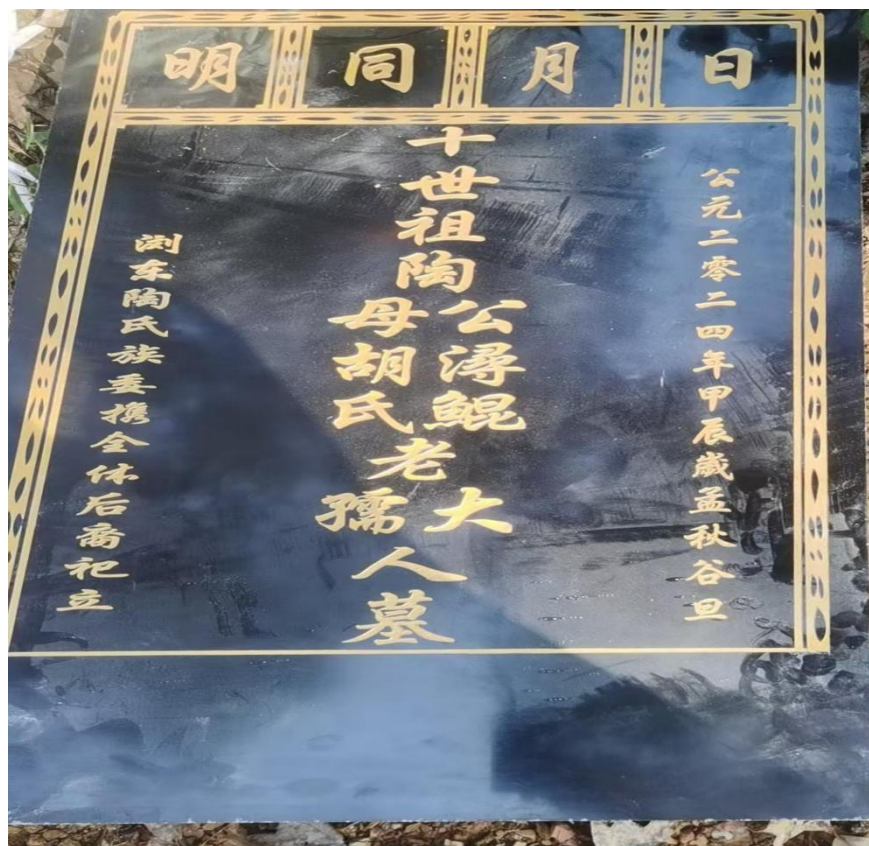 日月同明
公元二零二四年甲辰歲孟秋谷旦
十世祖陶
公潯鯤
母胡氏
老
大
孺
人墓
浏东陶氏族委携全体后裔祀立